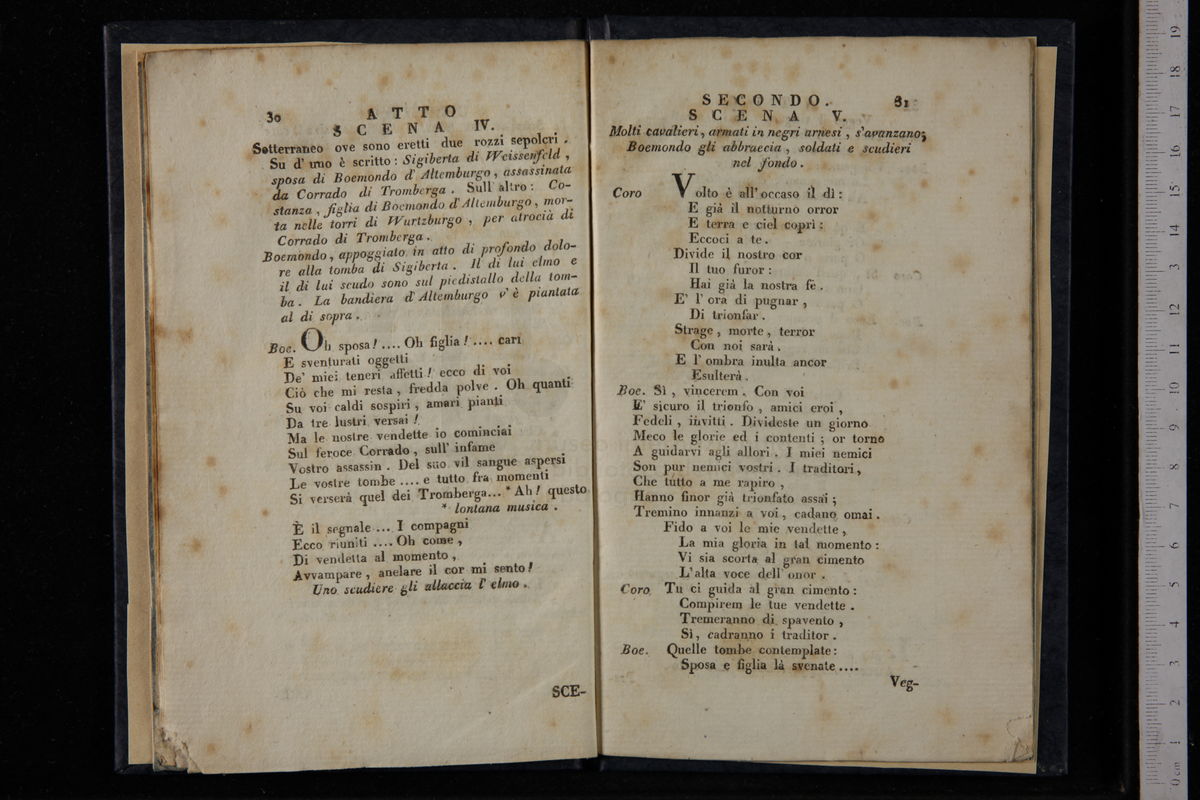 30
ATTO
SCENA IV.
Sotterraneo ove sono eretti due rozzi sepolcri.
Su d'uno è scritto: Sigiberta di Weissenfeld,
sposa di Boemondo d'Altemburgo, assassinata
da Corrado di Tromberga. Sull'altro: Co-
stanza, figlia di Boemondo d'Altemburgo, mor-
ta nelle torri di Wurtzburgo, per atrocià di
Corrado di Tromberga.
Boemondo, appoggiato in atto di profondo dolo-
re alla tomba di Sigiberta. Il di lui elmo e
il di lui scudo sono sul piedistallo della tom-
ba. La bandiera d'Altemburgo v'è piantata
al di sopra.
Boe. Oh sposa! .... Oh figlia! .... cari
E sventurati oggetti
De' miei teneri affetti! ecco di voi
Ciò che mi resta, fredda polve. Oh quanti
Su voi caldi sospiri, amari pianti
Da tre lustri versai!
Ma le nostre vendette io cominciai
Sul feroce Corrado, sull'infame
Vostro assassin. Del suo vil sangue aspersi
Le vostre tombe .... e tutto fra momenti
Si verserà quel dei Tromberga... * Ah! questo
* lontana musica.
È il segnale ... I compagni
Ecco riuniti .... Oh come,
Di vendetta al momento,
Avvampare, anelare il cor mi sento!
Uno scudiere gli allaccia l'elmo.
SCE-
SECONDO.
31
SCENA V.
Molti cavalieri, armati in negri arnesi, s'avanzano;
Boemondo gli abbraccia, soldati e scudieri
nel fondo.
Coro Volto è all'occaso il dì:
E già il notturno orror
E terra e ciel coprì:
Eccoci a te.
Divide il nostro cor
Il tuo furor:
Hai già la nostra fè.
E' l'ora di pugnar,
Di trionfar.
Strage, morte, terror
Con noi sarà.
E l'ombra inulta ancor
Esulterà.
Boe. Sì, vincerem. Con voi
E' sicuro il trionfo, amici eroi,
Fedeli, invitti. Divideste un giorno
Meco le glorie ed i contenti; or torno
A guidarvi agli allori. I miei nemici
Son pur nemici vostri. I traditori,
Che tutto a me rapiro,
Hanno finor già trionfato assai;
Tremino innanzi a voi, cadano omai.
Fido a voi le mie vendette,
La mia gloria in tal momento:
Vi sia scorta al gran cimento
L'alta voce dell'onor.
Coro Tu ci guida al gran cimento:
Compirem le tue vendette.
Tremeranno di spavento,
Sì, cadranno i traditor.
Boe. Quelle tombe contemplate:
Sposa e figlia là svenate....
Veg-
0 cm 1 2 3 4 5 6 7 8 9 10 11 12 13 14 15 16 17 18 19